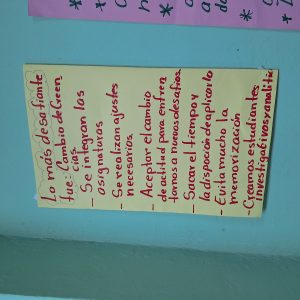 Lo más desafiante
fue: Cambio de Creen
cias.
- Se integran las
asignaturas
- Se realizan ajustes
necesarios.
- Aceptar el cambio
de actitud para enfren
tarnos a nuevos desafios.
- Sacar el tiempo y
la disposición de aplicarlo
- Evita mucho la
memorización
- Creamos estudiantes
investigativos y analitic